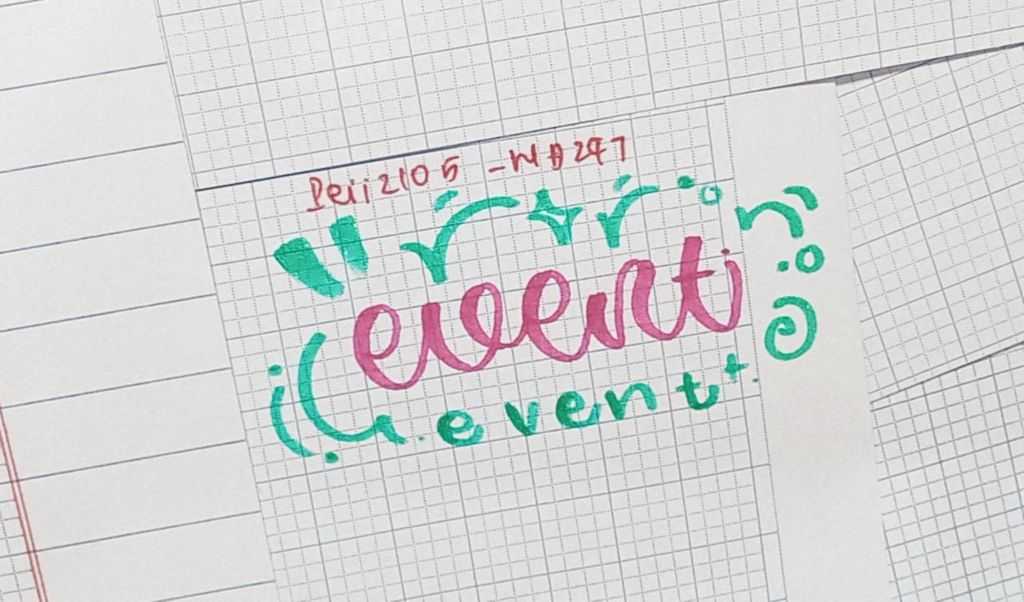 Peii2105 -WB247
event
event